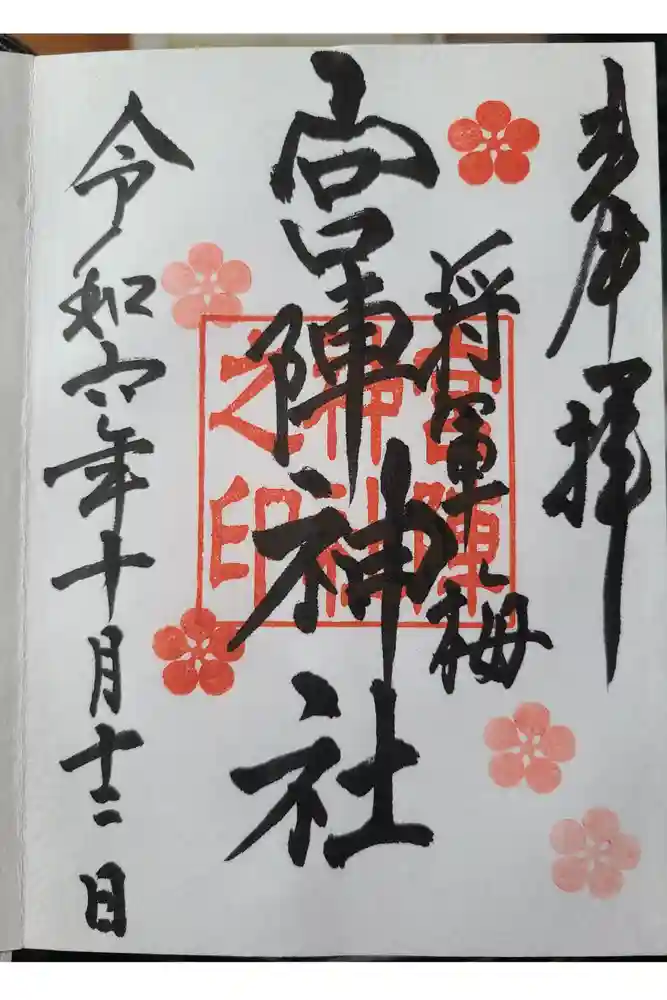 奉拝
将軍梅
宮陣神社
宮陣
神社
之印
令和六年十月十二日